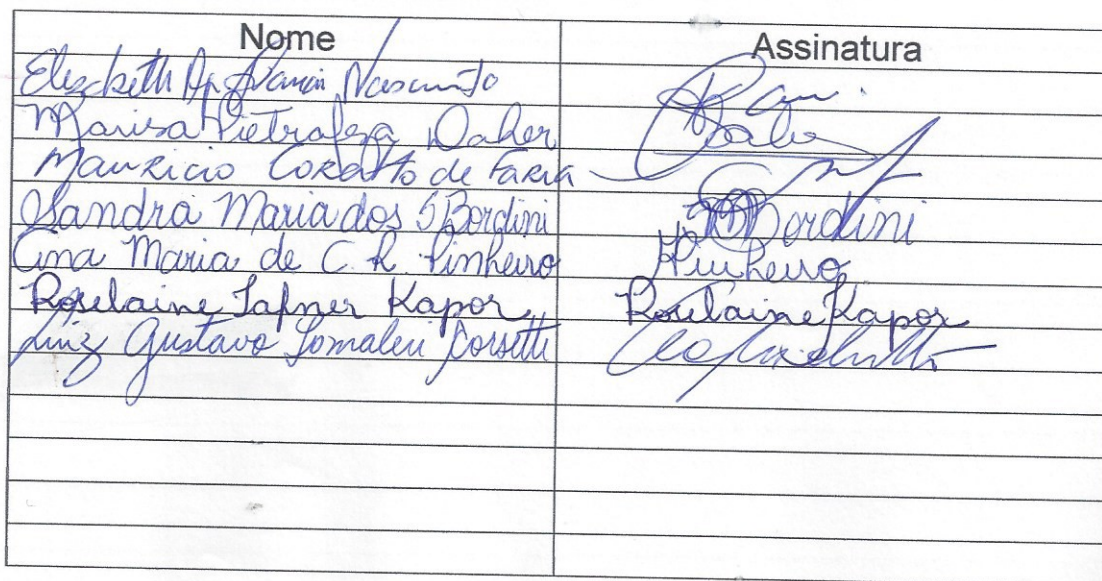 Nome Assinatura
Elizabeth Ap. Nascimento
Marisa Pietrafeza Daher
Mauricio Coratto de Faria
Sandra Maria dos S Bordini Bordini
Ana Maria de C. R. Pinheiro Pinheiro
Roselaine Tafner Kapor Roselaine Kapor
Luiz Gustavo Corsetti